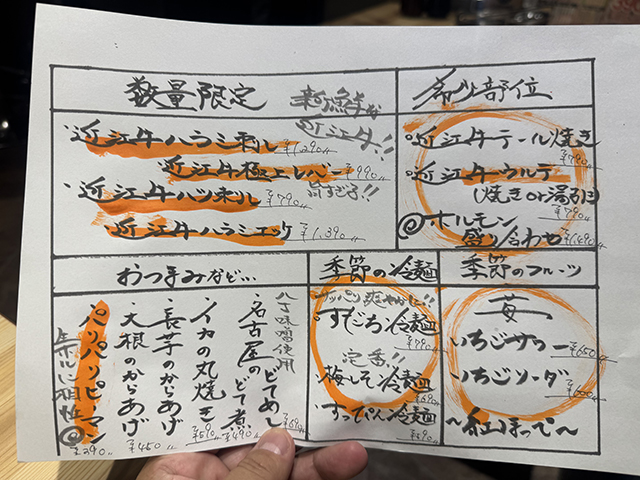 数量限定
新鮮な
近江牛!!
近江牛ハラミ刺し ¥1,290
近江牛極上レバー ¥990
旨すぎる!!
近江牛ハツ刺し ¥790
近江牛ハラミエッケ ¥1,390
希少部位
近江牛テール焼き ¥790
近江牛ウルテ
(焼きor湯引き) ¥790
@ホルモン
盛り合わせ ¥1,490
おつまみなど…
八丁味噌使用
名古屋のどてめし ¥690
名古屋のどて煮 ¥490
イカの丸焼き ¥590
長芋のからあげ
大根のからあげ ¥450
パリパリピーマン ¥290
季節の冷麺
サッパリ爽やかに!!
すだち冷麺 ¥790
定番!!
梅しそ冷麺 ¥690
すっぴん冷麺 ¥590
季節のフルーツ
苺
いちごサワー ¥650
いちごソーダ ¥600
〜紅ほっぺ〜